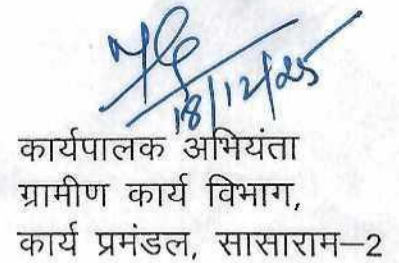 18/12/25
कार्यपालक अभियंता
ग्रामीण कार्य विभाग,
कार्य प्रमंडल, सासाराम–2